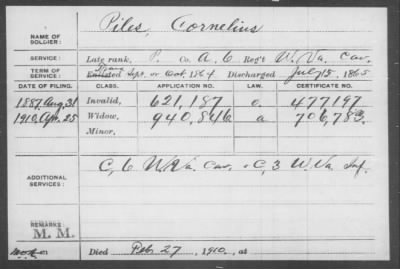 Piles, Cornelius
NAME OF
SOLDIER:
SERVICE:
Late rank, P. Co. A, 6 Reg't W. Va. Cav.
TERM OF
SERVICE:
Enlisted Sept. or Oct. 1864 Discharged July 15, 1865
DATE OF FILING.
CLASS.
APPLICATION NO.
LAW.
CERTIFICATE NO.
1887 Aug. 31
Invalid,
621,187
477197
1910 Apr. 25
Widow,
940,846
a
706,783
Minor,
ADDITIONAL
SERVICES:
C, 6 W. Va. Cav. & C, 3 W. Va. Inf.
REMARKS:
M. M.
Died Feb. 27, 1910, at